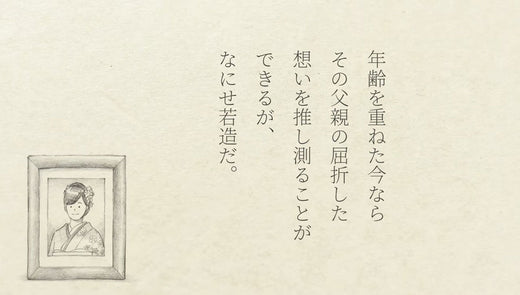 年齢を重ねた今なら
その父親の屈折した
想いを推し測ることが
できるが、
なにせ若造だ。